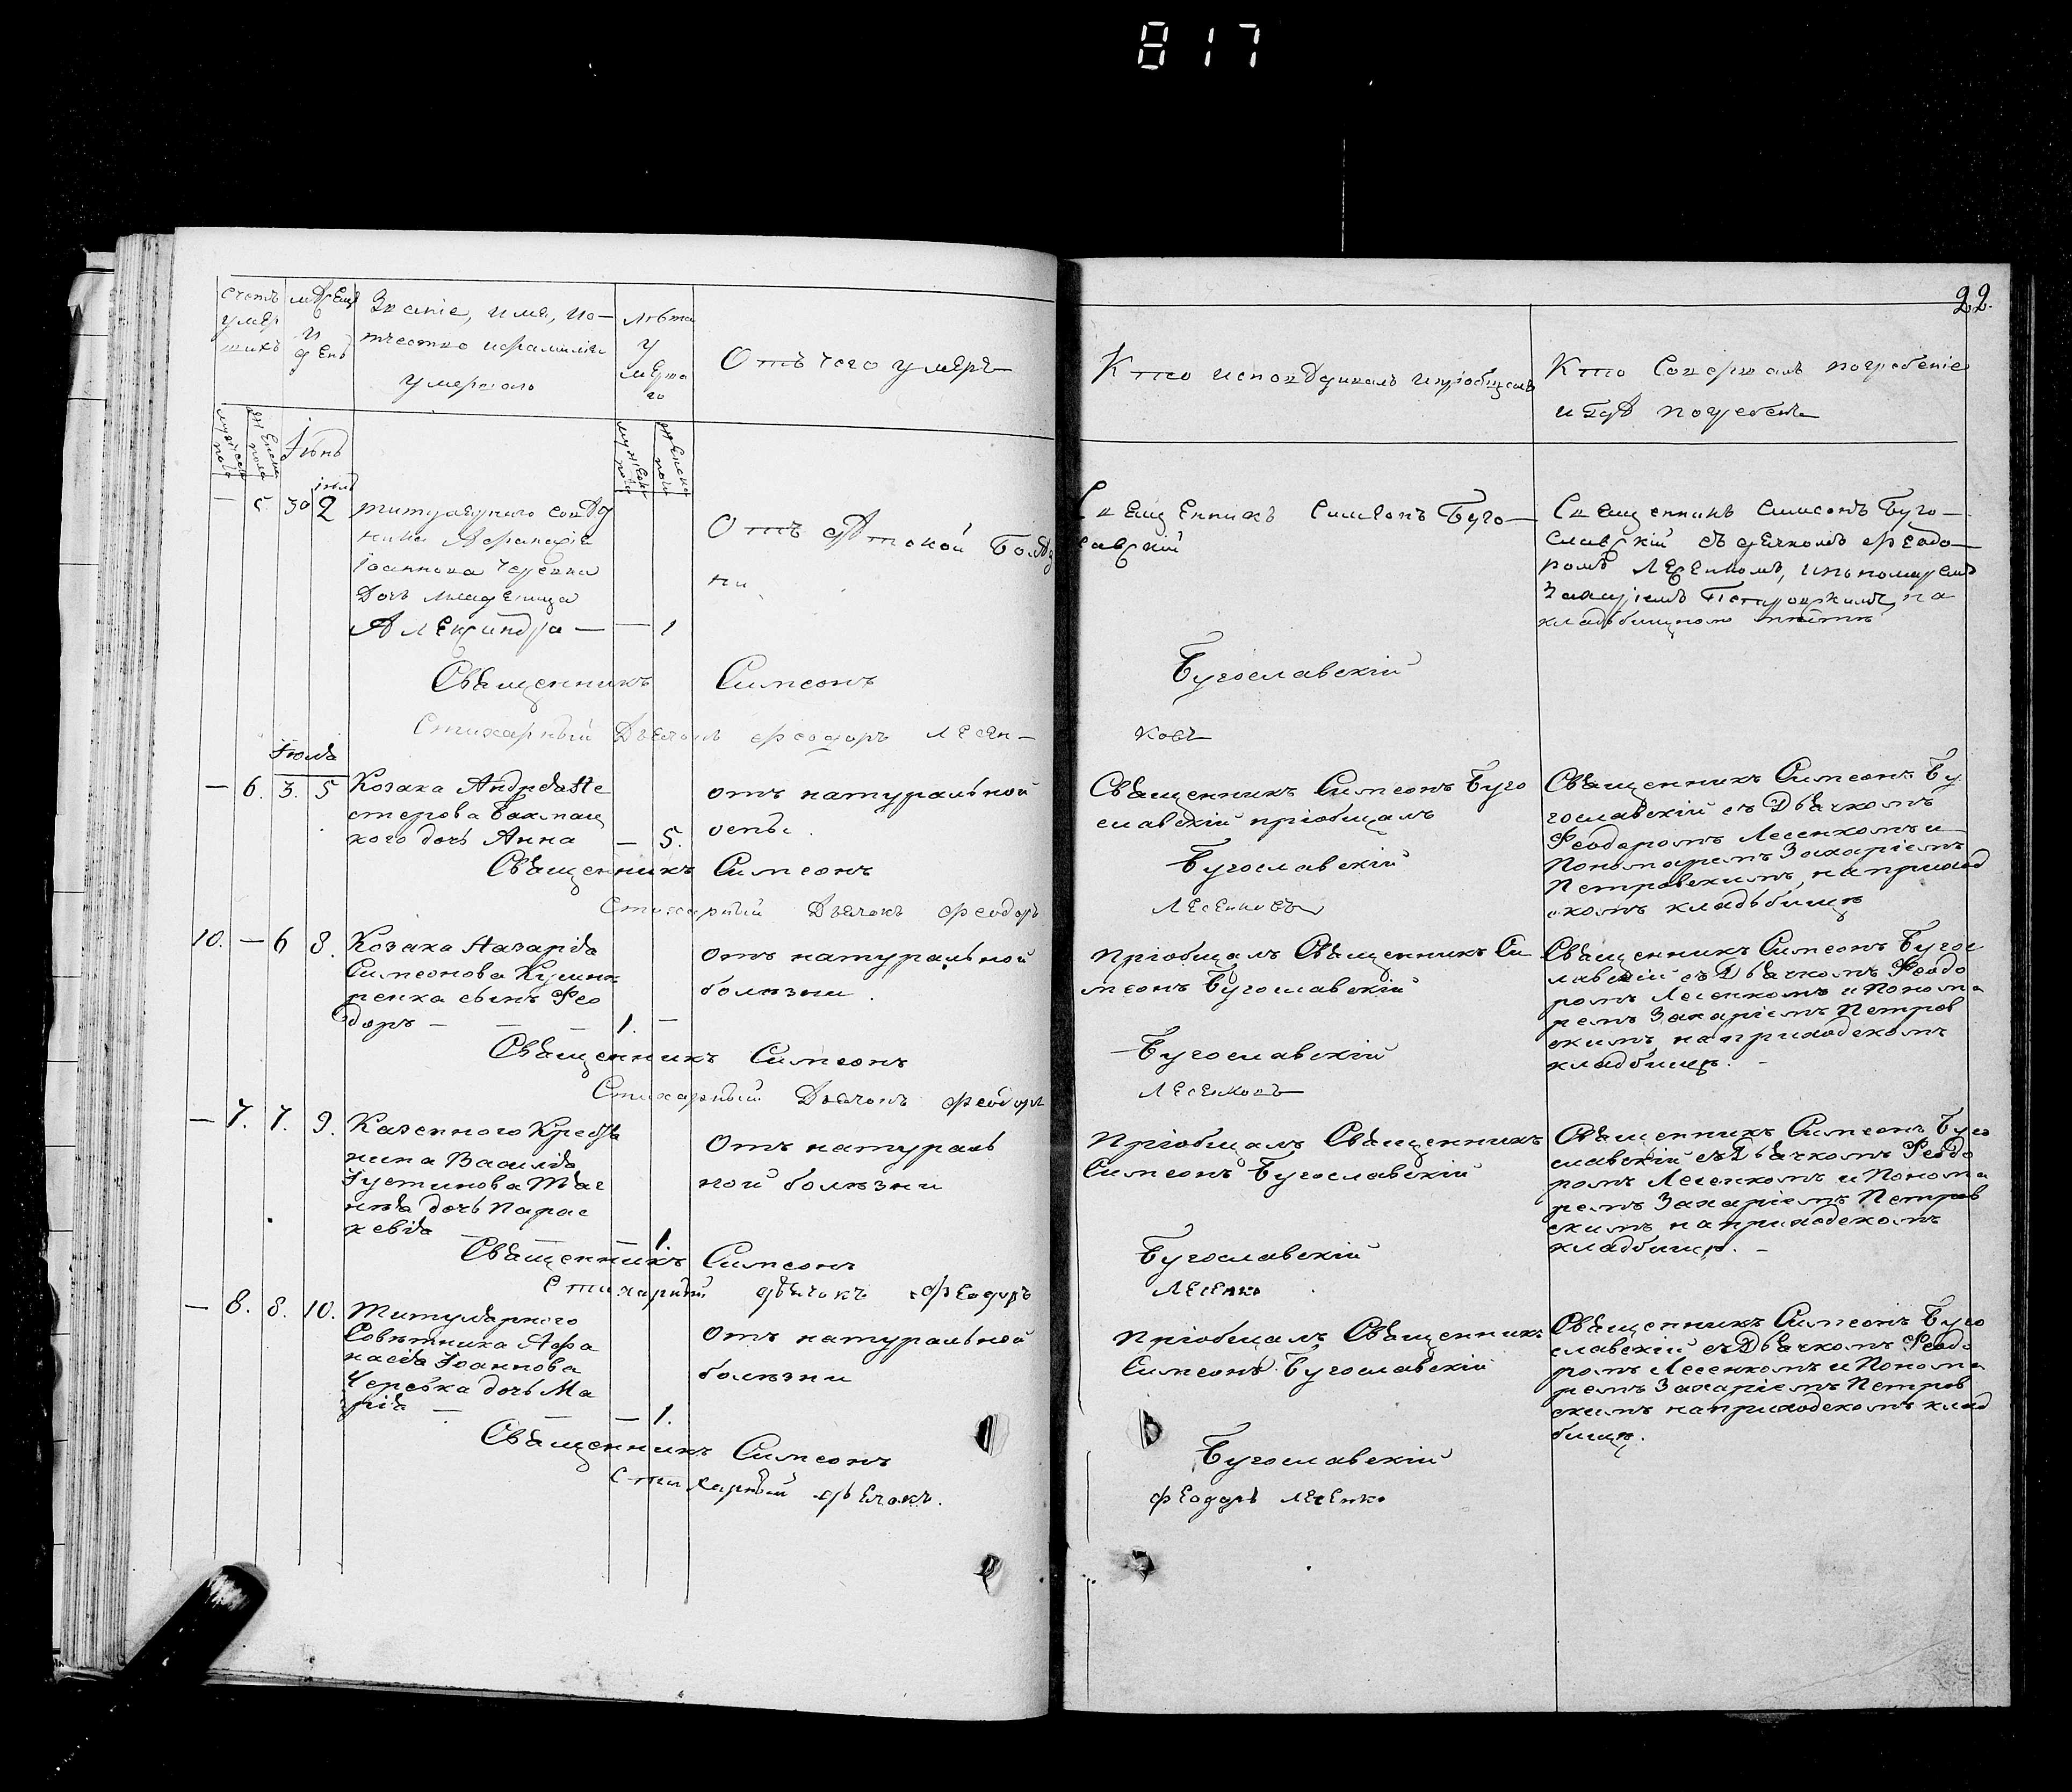 817
22.
Счетъ умер шихъ
мѣсяцъ и день
Званіе, имя, и о-
тчество и фамиліи
умершаго
Лѣта у мерша го
Отъ чего умеръ
Кто исповѣдывалъ и пріобщалъ
Кто совершалъ погребеніе
и гдѣ погребенъ
мужеска пола
женска пола
Іюнь
іюль
— 5. 30 2 титулярнаго совѣт
ника Афанасія
Іоаннова Черепка
Дочь младеница
Александра — — 1
Отъ дѣтской болѣз
ни
Священникъ Симеонъ Буго—
славскій
Священникъ Симеонъ Буго—
славскій съ дьячкомъ Феодо—
ромъ Лесенкомъ, и пономаремъ
Захаріемъ Петровскимъ, на
кладбищномъ мѣстѣ
Священникъ Симеонъ Бугославскій
Стихарный Дьячокъ Феодоръ Лесен—ковъ
Іюля
— 6. 3. 5 Козака Андрея Не
стерова Бахмац
кого дочь Анна — 5.
отъ натуральной
оспы.
Священникъ Симеонъ Буго
славскій пріобщалъ
Священникъ Симеонъ Бу
гославскій съ Дьячкомъ
Феодоромъ Лесенкомъ и
Пономаремъ Захаріемъ
Петровскимъ, на приход
скомъ кладьбищѣ
Священникъ Симеонъ Бугославскій
Стихарный Дьячокъ Феодоръ Лесенковъ
10. — 6 8. Козака Назарія
Симеонова Кушни
ренка сынъ Фео
доръ — — — 1. —
отъ натуральной
болѣзни.
Пріобщалъ Священникъ Си
меонъ Бугославскій
Священникъ Симеонъ Бугос
лавскій съ Дьячкомъ Феодо
ромъ Лесенкомъ и Понома
ремъ Захаріемъ Петров
скимъ, на приходскомъ
кладбищѣ. —
Священникъ Симеонъ Бугославскій
Стихарный Дьячокъ Феодоръ Лесенковъ
— 7. 7. 9. Казенного Кресть
нина Василія
Іустинова
дочь Парас
кевія — — — 1.
Отъ натураль
ной болѣзни
Пріобщалъ Священникъ
Симеонъ Бугославскій
Священникъ Симеонъ Буго
славскій съ Дьячкомъ Феодо
ромъ Лесенкомъ и Понома
ремъ Захаріемъ Петров
скимъ, на приходскомъ
кладбищѣ. —
Священникъ Симеонъ Бугославскій
Стихарный дьячокъ Феодоръ Лесенко
— 8. 8. 10. Титулярного
Совѣтника Афа
насія Іоаннова
Черепка дочь Ма
рія — — — 1.
отъ натуральной
болѣзни
Пріобщалъ Священникъ
Симеонъ Бугославскій
Священникъ Симеонъ Буго
славскій съ Дьячкомъ Феодо
ромъ Лесенкомъ и Понома
ремъ Захаріемъ Петров
скимъ на приходскомъ клад
бищѣ.
Священникъ Симеонъ Бугославскій
Стихарный дьячокъ. Феодоръ Лесенко